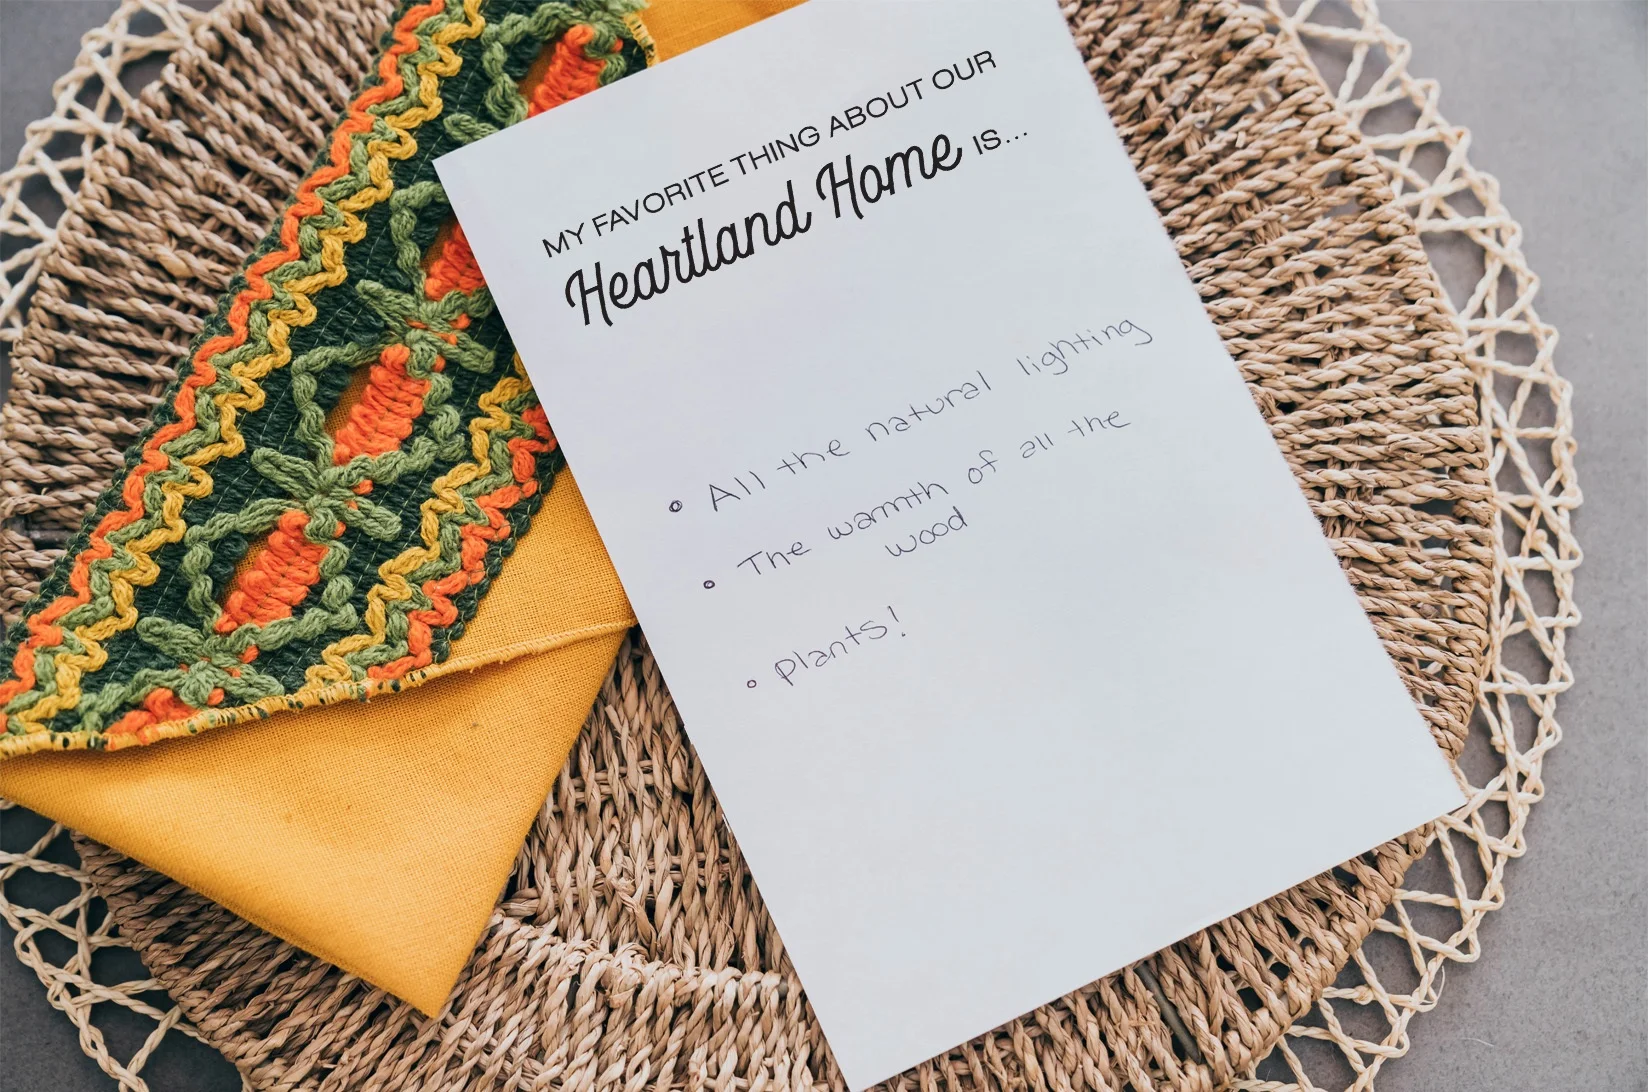 MY FAVORITE THING ABOUT OUR
Heartland Home IS...
• All the natural lighting
• The warmth of all the
wood
• plants!